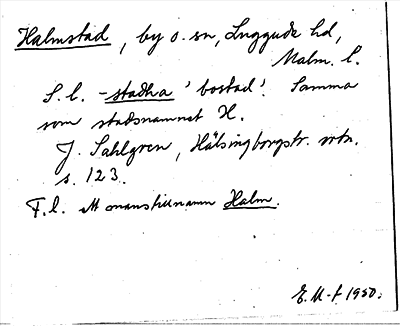 Halmstad, by o. sn, Luggude hd,
Malm. l.
S. l. -stadha 'bostad'. Samma
som stadsnamnet H.
J. Sahlgren, Hälsingborgstr. ortn.
s. 123.
F. l. ett mansbinamn Halm.
E. M-t 1950.